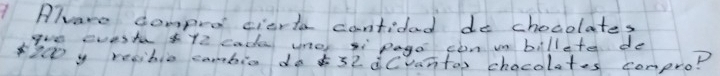 Alvaro compró cierta cantidad de chocolates
que cuesta $12 cada uno, si pago con un billete de
$200 y recibio cambio de $32 ¿Cuántos chocolates compro?